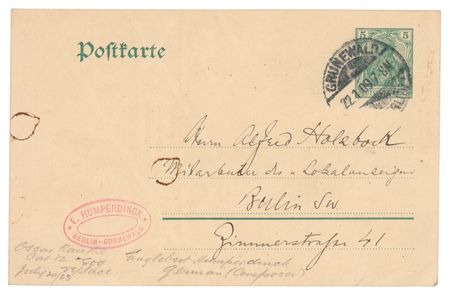 Postkarte
5
GRUNEWALD
22.1.09.7-8N.
Herrn Alfred Holzbock
Mitarbeiter des Lokalanzeiger
Berlin SW
Zimmerstraße 41
E. HUMPERDINCK
BERLIN-GRUNEWALD
Oscar
Cat 12
July 20/23
Englebert Humperdinck
German (Composer)